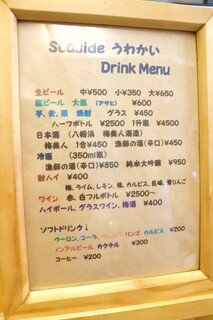 Seaside うわかい
Drink Menu
生ビール 中¥500 小¥350 大¥650
瓶ビール 大瓶 (アサヒ) ¥600
芋、麦、栗 焼酎 グラス ¥450
ハーフボトル ¥2500 1升瓶 ¥4500
日本酒 (八幡浜 梅美人酒造)
梅美人 1合¥450 漁師の酒(辛口)¥450
冷酒 (350ml瓶)
漁師の酒(辛口)¥850 純米大吟醸 ¥950
酎ハイ ¥400
梅、ライム、レモン、桃、カルピス、巨峰、青りんご
ワイン 赤、白フルボトル ¥2500～
ハイボール、グラスワイン、梅酒 ¥400
ソフトドリンク↓
ウーロン、コーラ、リンゴ、カルピス ¥200
ノンアルビール、カクテル ¥300
コーヒー ¥200